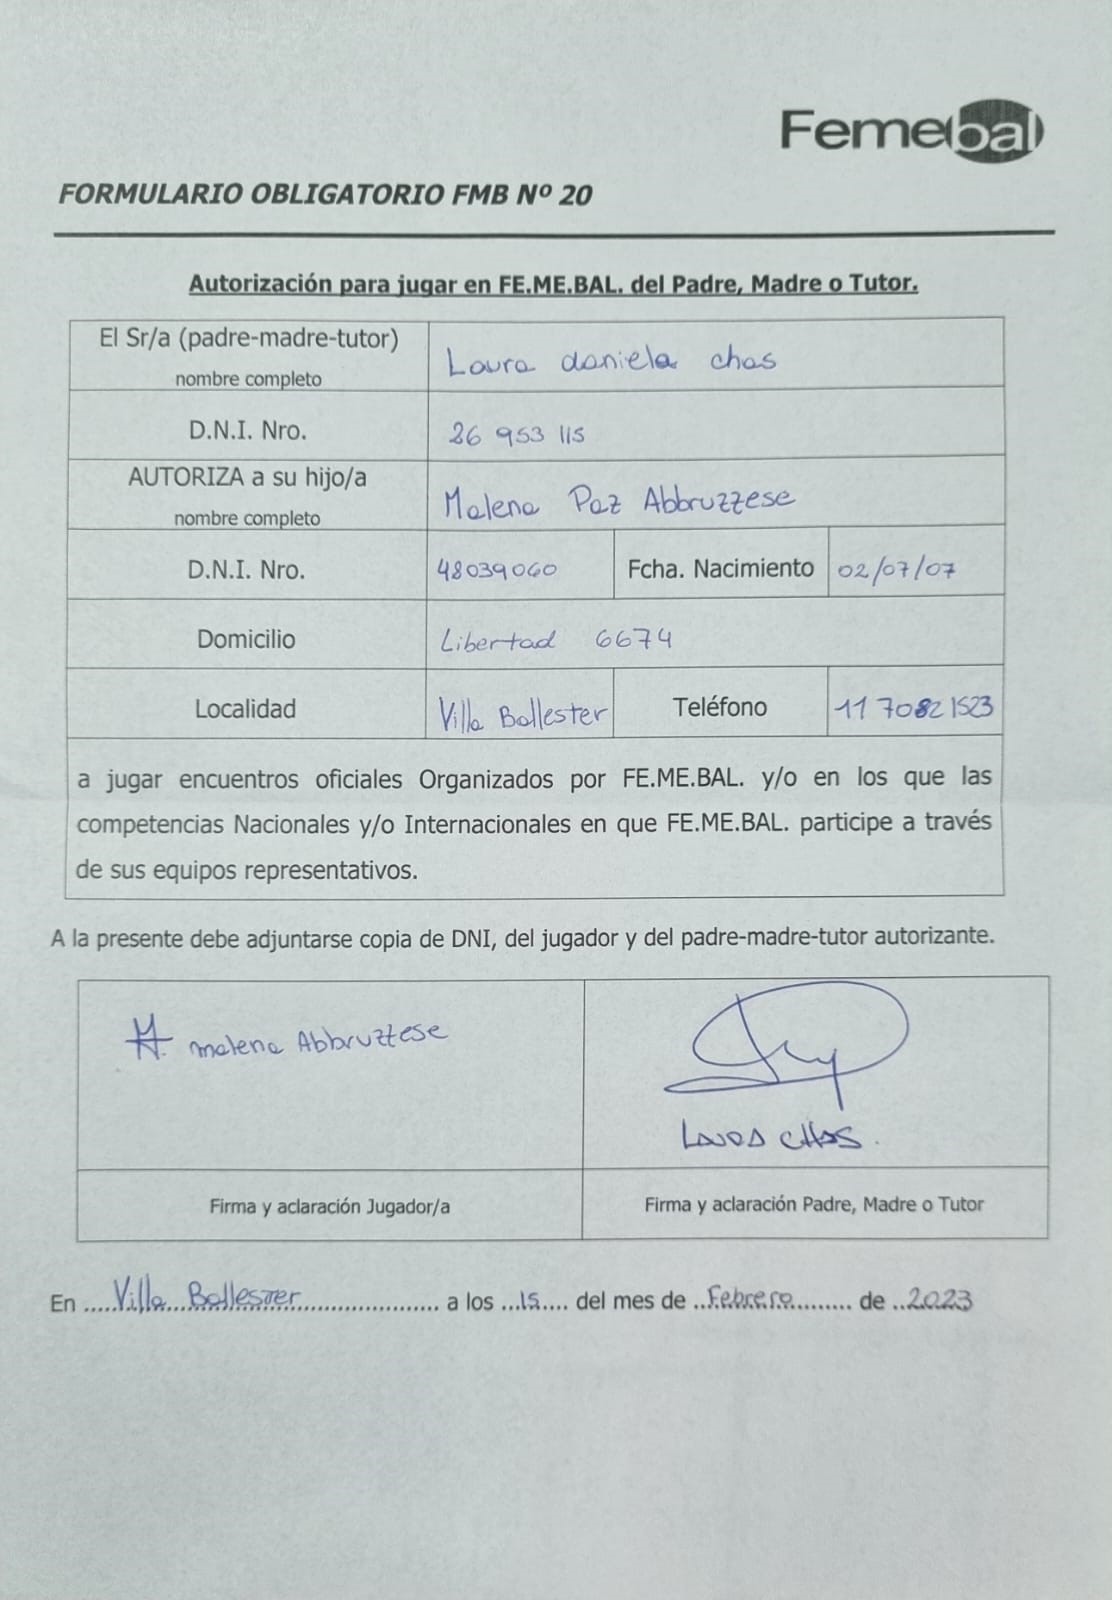 Femebal
FORMULARIO OBLIGATORIO FMB Nº 20
Autorización para jugar en FE.ME.BAL. del Padre, Madre o Tutor.
El Sr/a (padre-madre-tutor)
nombre completo
Laura daniela chas
D.N.I. Nro.
26 953 115
AUTORIZA a su hijo/a
nombre completo
Malena Paz Abbruzzese
D.N.I. Nro.
48039060
Fcha. Nacimiento
02/07/07
Domicilio
Libertad 6674
Localidad
Villa Ballester
Teléfono
11 70821523
a jugar encuentros oficiales Organizados por FE.ME.BAL. y/o en los que las
competencias Nacionales y/o Internacionales en que FE.ME.BAL. participe a través
de sus equipos representativos.
A la presente debe adjuntarse copia de DNI, del jugador y del padre-madre-tutor autorizante.
malena Abbruzzese
LAURA CHAS.
Firma y aclaración Jugador/a
Firma y aclaración Padre, Madre o Tutor
En .....Villa Ballester..... a los ...15.... del mes de ..Febrero......... de ..2023